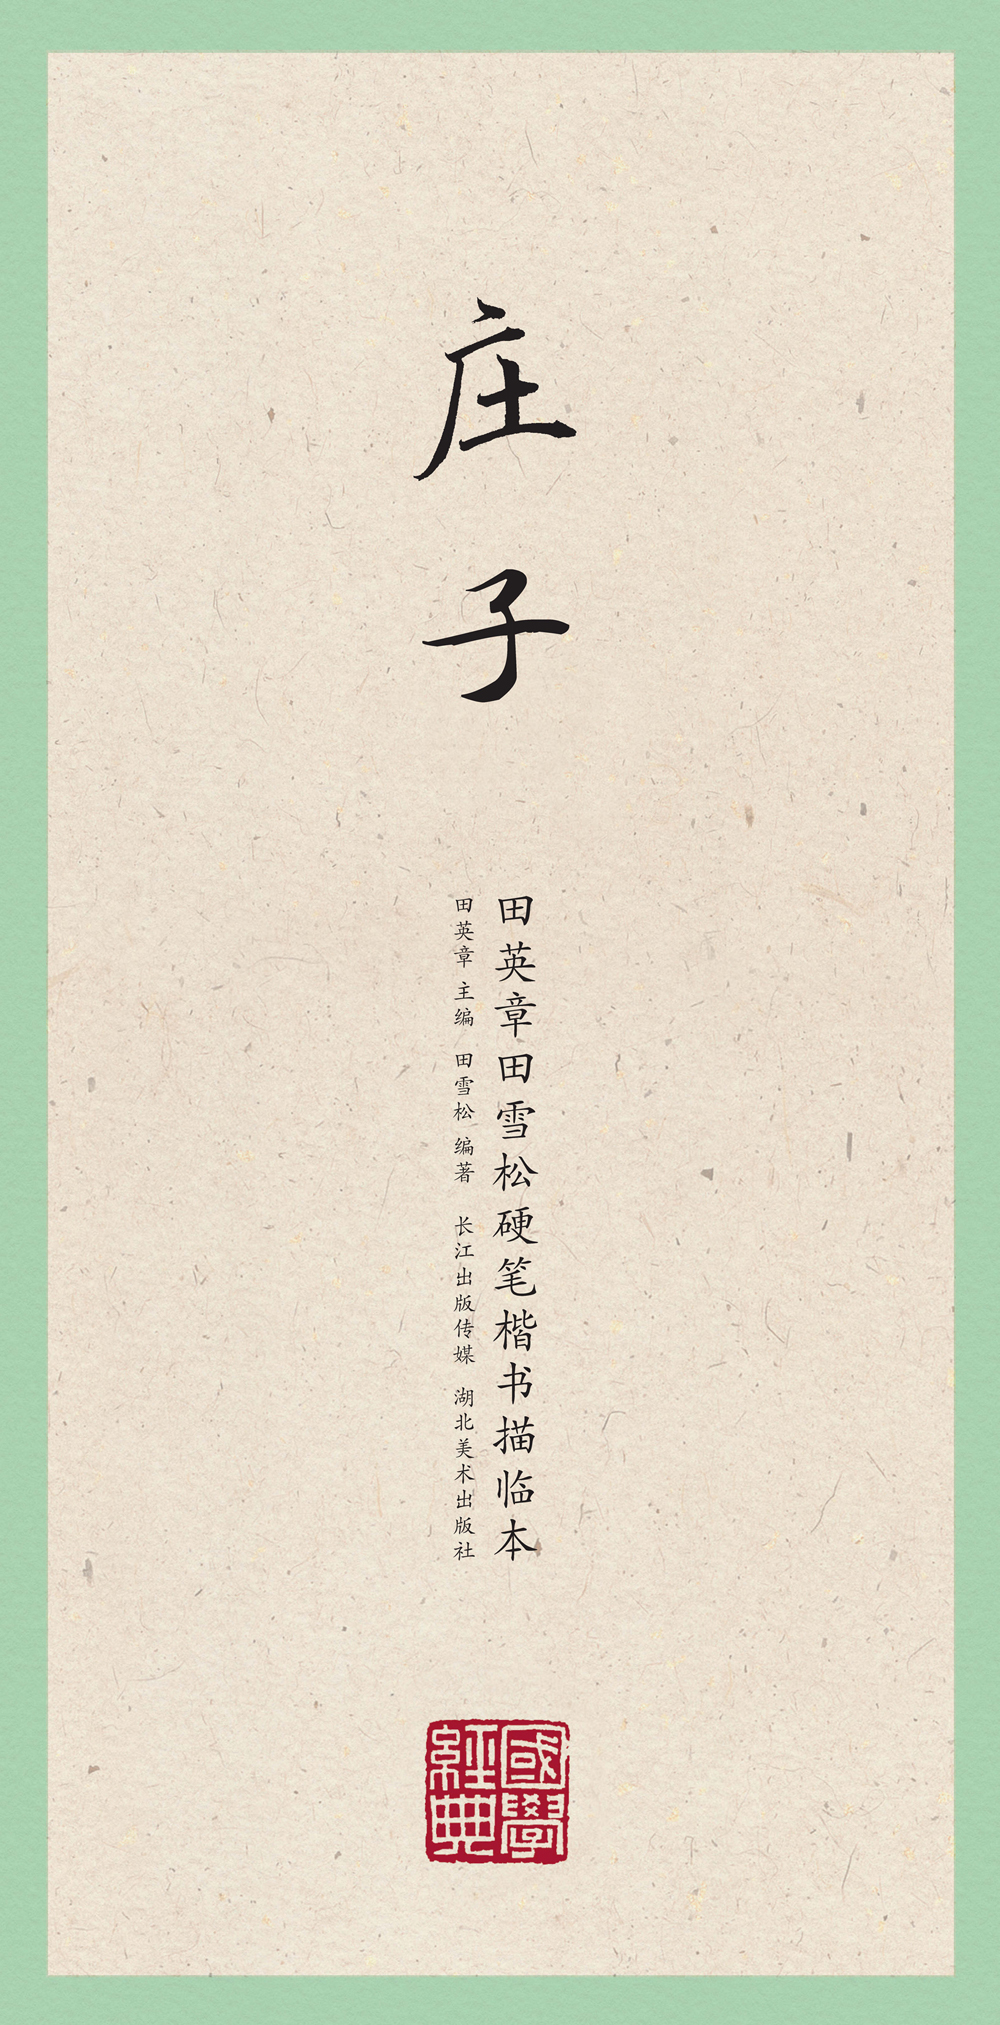 庄子
田英章田雪松硬笔楷书描临本
田英章 主编 田雪松 编著 长江出版传媒 湖北美术出版社
國學
經典